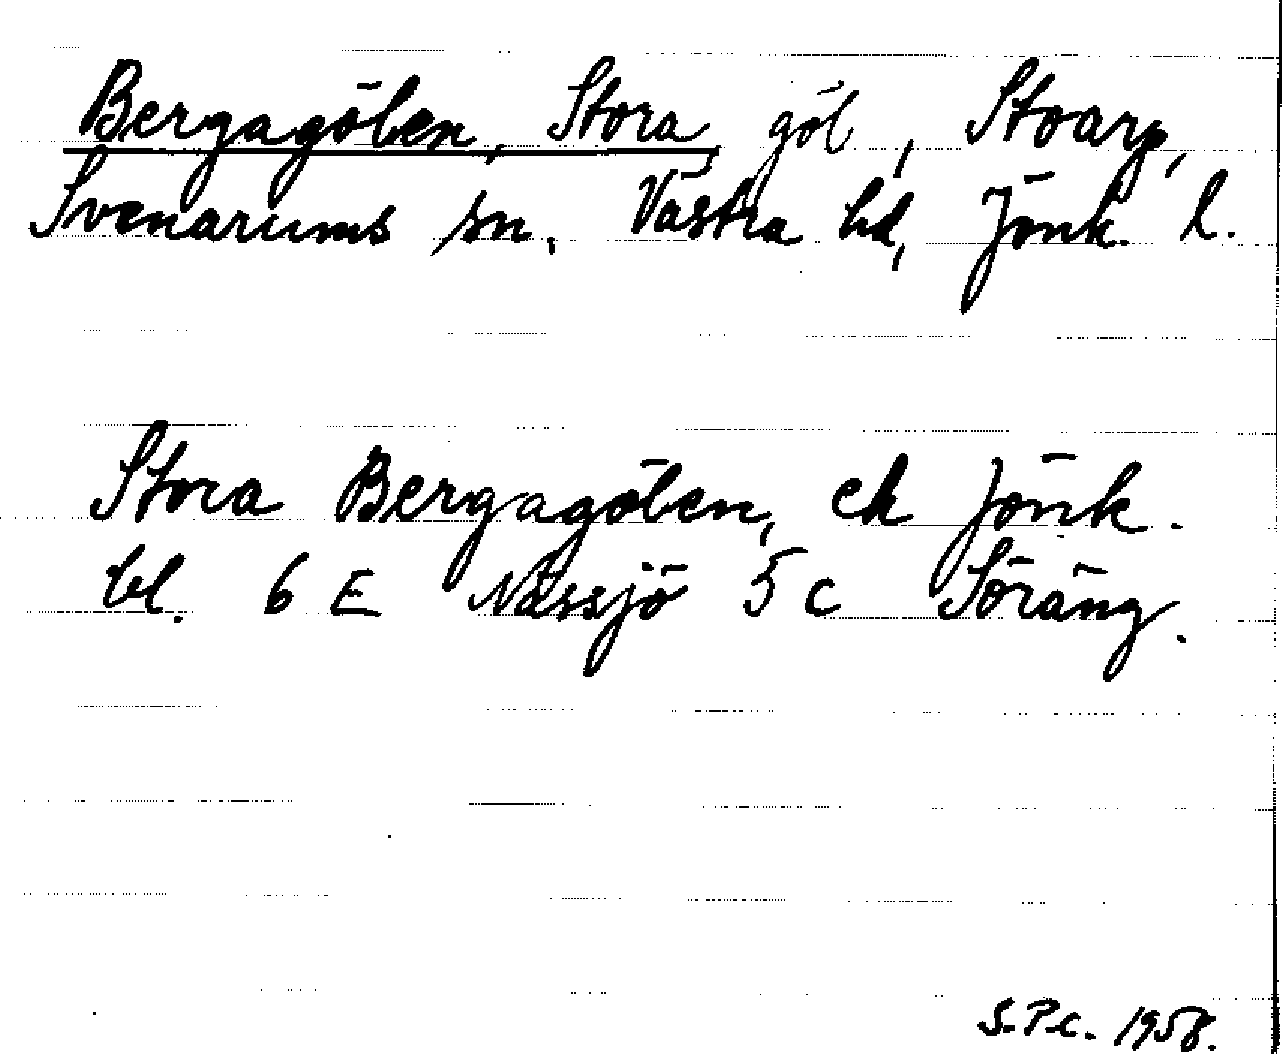 Bergagölen, Stora, göl, Stoarp,
Svenarums sn. Västra hd, Jönk. l.
Stora Bergagölen, ek Jönk.
bl. 6 E Nässjö 5 c Söräng.
S.P.C. 1958.